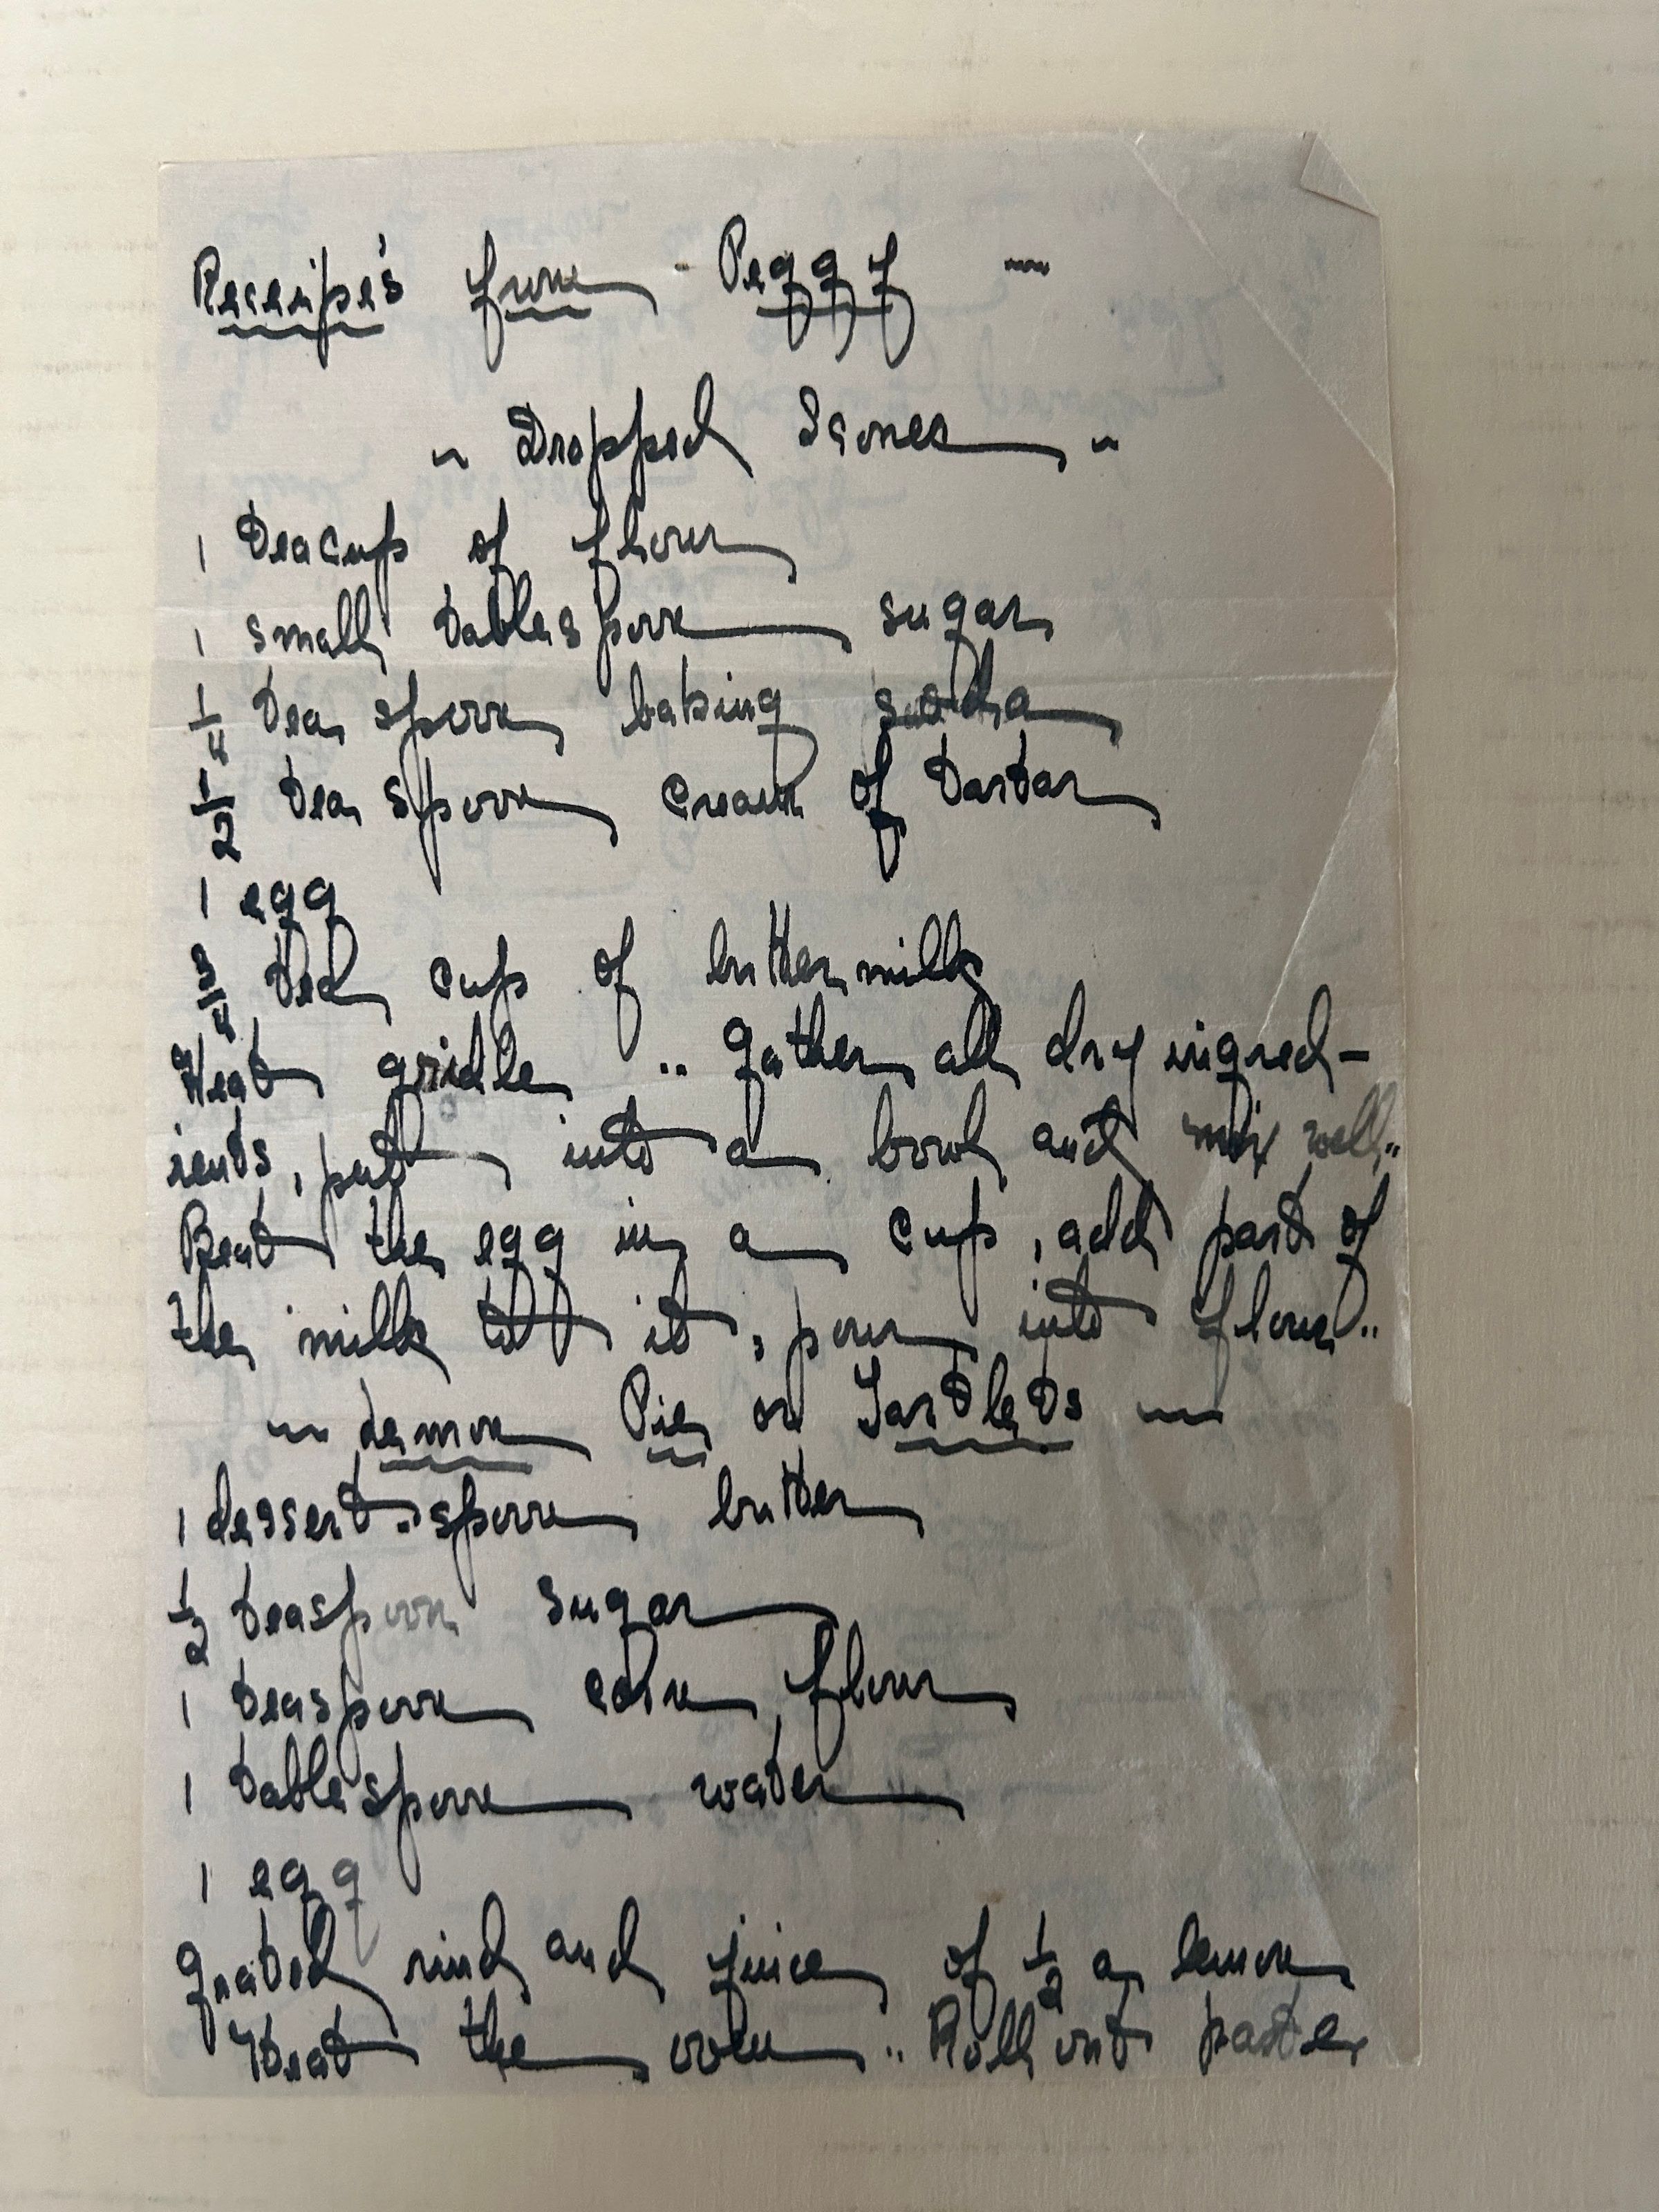 Receipe's from - Peggy ~
~ Dropped Scones ~
1 teacup of flour
1 small tablespoon sugar
1/4 tea spoon baking soda
1/2 tea spoon cream of tartar
1 egg
3/4 tea cup of buttermilk
Heat gridle .. gather all dry ingred-
ients, put into a bowl and mix well..
Beat the egg in a cup, add part of
the milk to it, pour into flour..
~ Lemon Pie or Tartlets ~
1 dessert-spoon butter
1/2 teaspoon sugar
1 teaspoon corn flour
1 tablespoon water
1 egg
grated rind and juice of 1/2 a lemon
Heat the oven .. Roll out paste